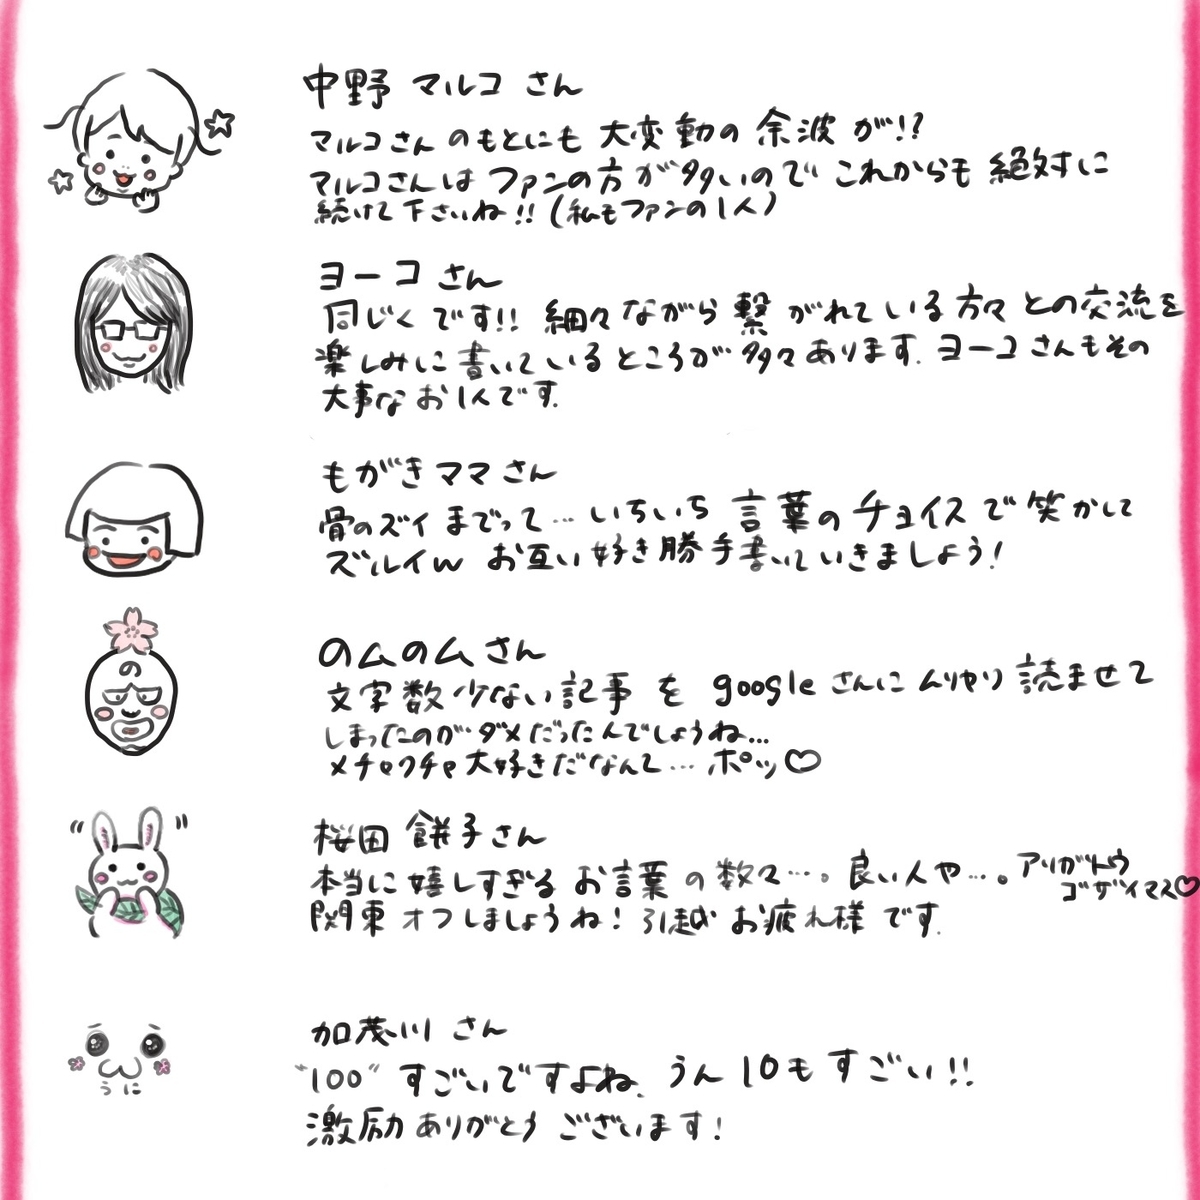 中野 マルコ さん
マルコさん のもとにも 大変動の 余波 が!?
マルコさんは ファンの方が多いので これからも 絶対に
続けて下さいね!! (私もファンの1人)
ヨーコ さん
同じくです!! 細々ながら 繋がれている方々との交流を
楽しみに書いているところが多々あります。ヨーコさんもその
大事なお1人です。
もがきママさん
骨のズイまでって… いちいち 言葉のチョイスで笑かして
ズルイw お互い好き勝手書いていきましょう!
のムのムさん
の
文字数少ない記事を googleさんにムリヤリ読ませて
しまったのがダメだったんでしょうね…
メチャクチャ大好きだなんて… ポッ♡
桜田 餅子さん
本当に嬉しすぎるお言葉の数々…。良い人や…。アリガトウ
ゴザイマス♡
関東オフしましょうね! 引越しお疲れ様です。
加茂川 さん
うに
"100" すごいですよね、うん 10もすごい!!
激励ありがとうございます!